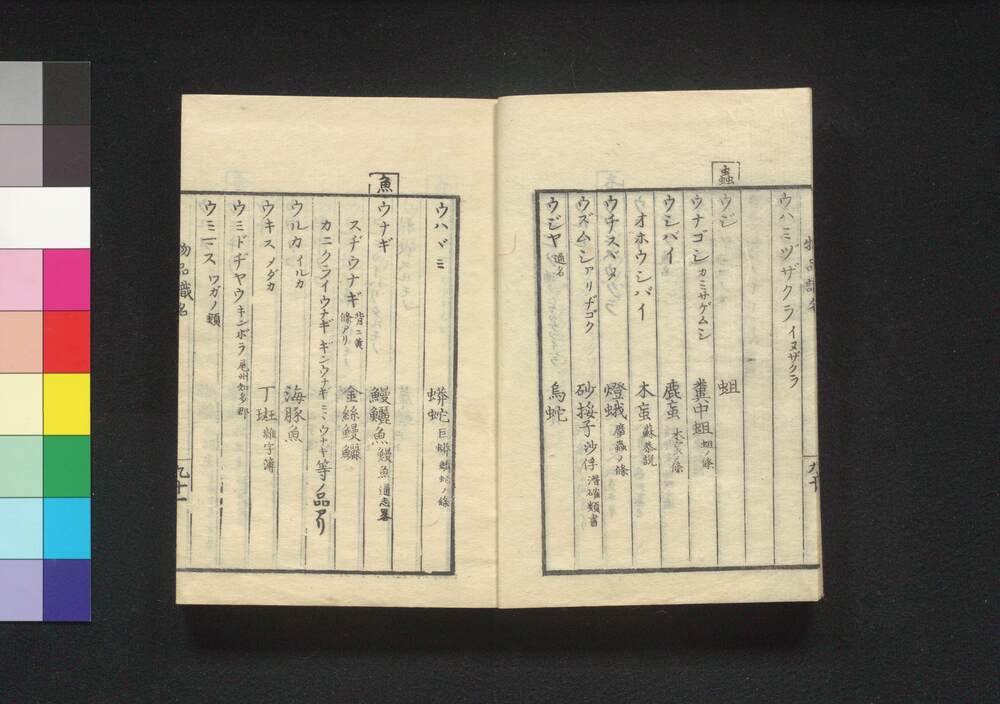 ウハミヅザクラ イヌザクラ
蟲
ウジ 蛆
ウナゴジ カミサゲムシ 糞中蛆 蛆ノ條
ウシバイ 鹿蝱
オホウシバイ 木蝱 蘇恭説
ウチスヾメ 燈蛾
ウズムシ アリヂゴク 砂挼子 沙俘 潛確類書
ウジヤ 通名 烏蛇
九十
ウハヾミ 蟒蛇 巨蟒
魚
ウナギ 鰻鱺魚 鰻魚 通志畧
スヂウナギ 背ニ 條アリ 金絲鰻鱺
カニクライウナギ ギンウナギ 等ノ品アリ
ウルカ イルカ 海豚魚
ウキス メダカ 丁斑 雜字簿
ウミドヂヤウ キンポラ 尾州知多郡
ウミ ス ワガノ類
物品識名
九十一